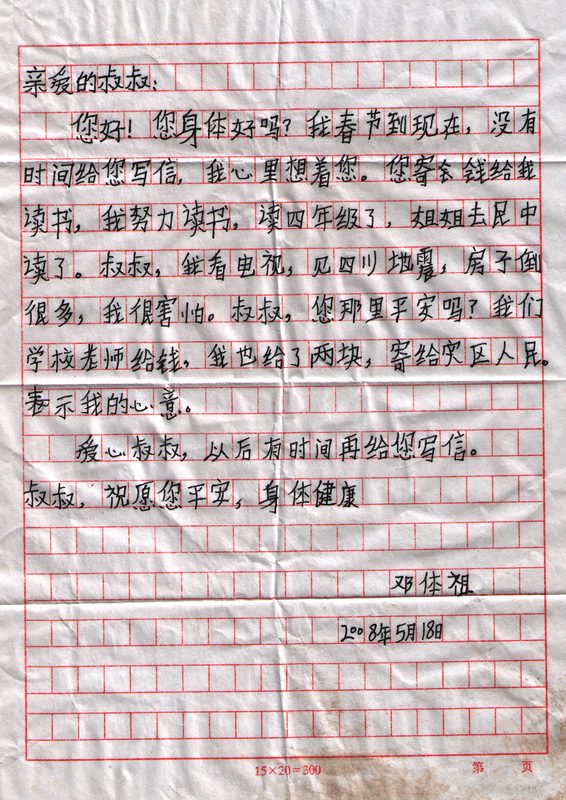 亲爱的叔叔：
您好！您身体好吗？我春节到现在，没有
时间给您写信，我心里想着您。您寄来钱给我
读书，我努力读书，读四年级了，姐姐去民中
读了。叔叔，我看电视，见四川地震，房子倒
很多，我很害怕。叔叔，您那里平安吗？我们
学校老师给钱，我也给了两块，寄给灾区人民。
表示我的心意。
爱心叔叔，以后有时间再给您写信。
叔叔，祝愿您平安，身体健康
邓体祖
2008年5月18日
15×20=300 第 页